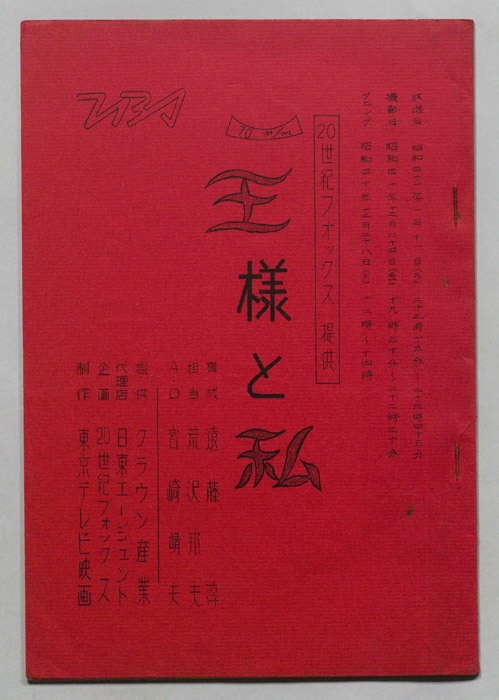 放送日 昭和四十一年 一月十一日(火) 二十三時十五分〜二十三時四十五分
撮影日 昭和四十年十二月二十四日(金) 十九時三十分〜二十二時三十分
ダビング 昭和四十年十二月二十八日(火) 十二時〜十四時
20世紀フォックス 提供
70 m/m
王様と私
構成 遠藤 淳
担当 荒沢邦夫
AD 宮崎靖夫
提供 クラウン産業
代理店 日東エージェント
企画 20世紀フォックス
制作 東京テレビ映画